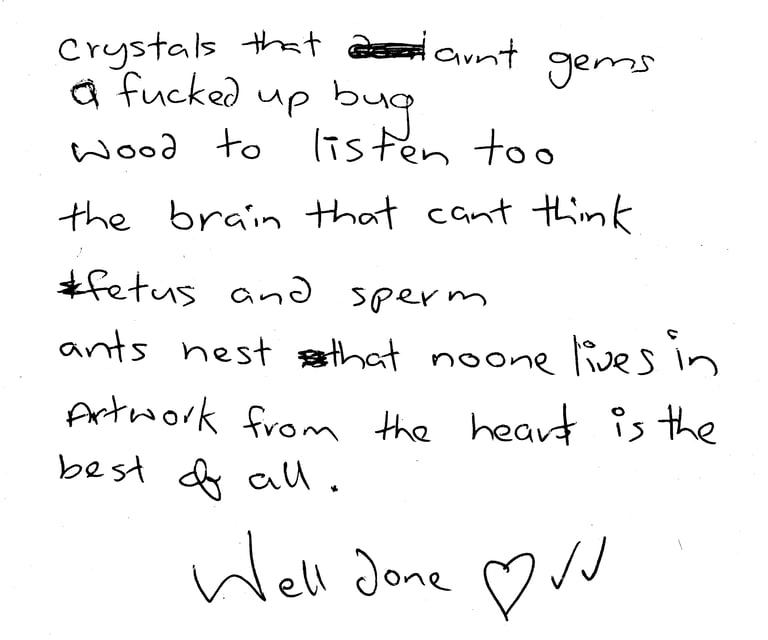 crystals that arnt gems
a fucked up bug
wood to listen too
the brain that cant think
fetus and sperm
ants nest that noone lives in
Artwork from the heart is the
best of all.
Well done ♡✓✓